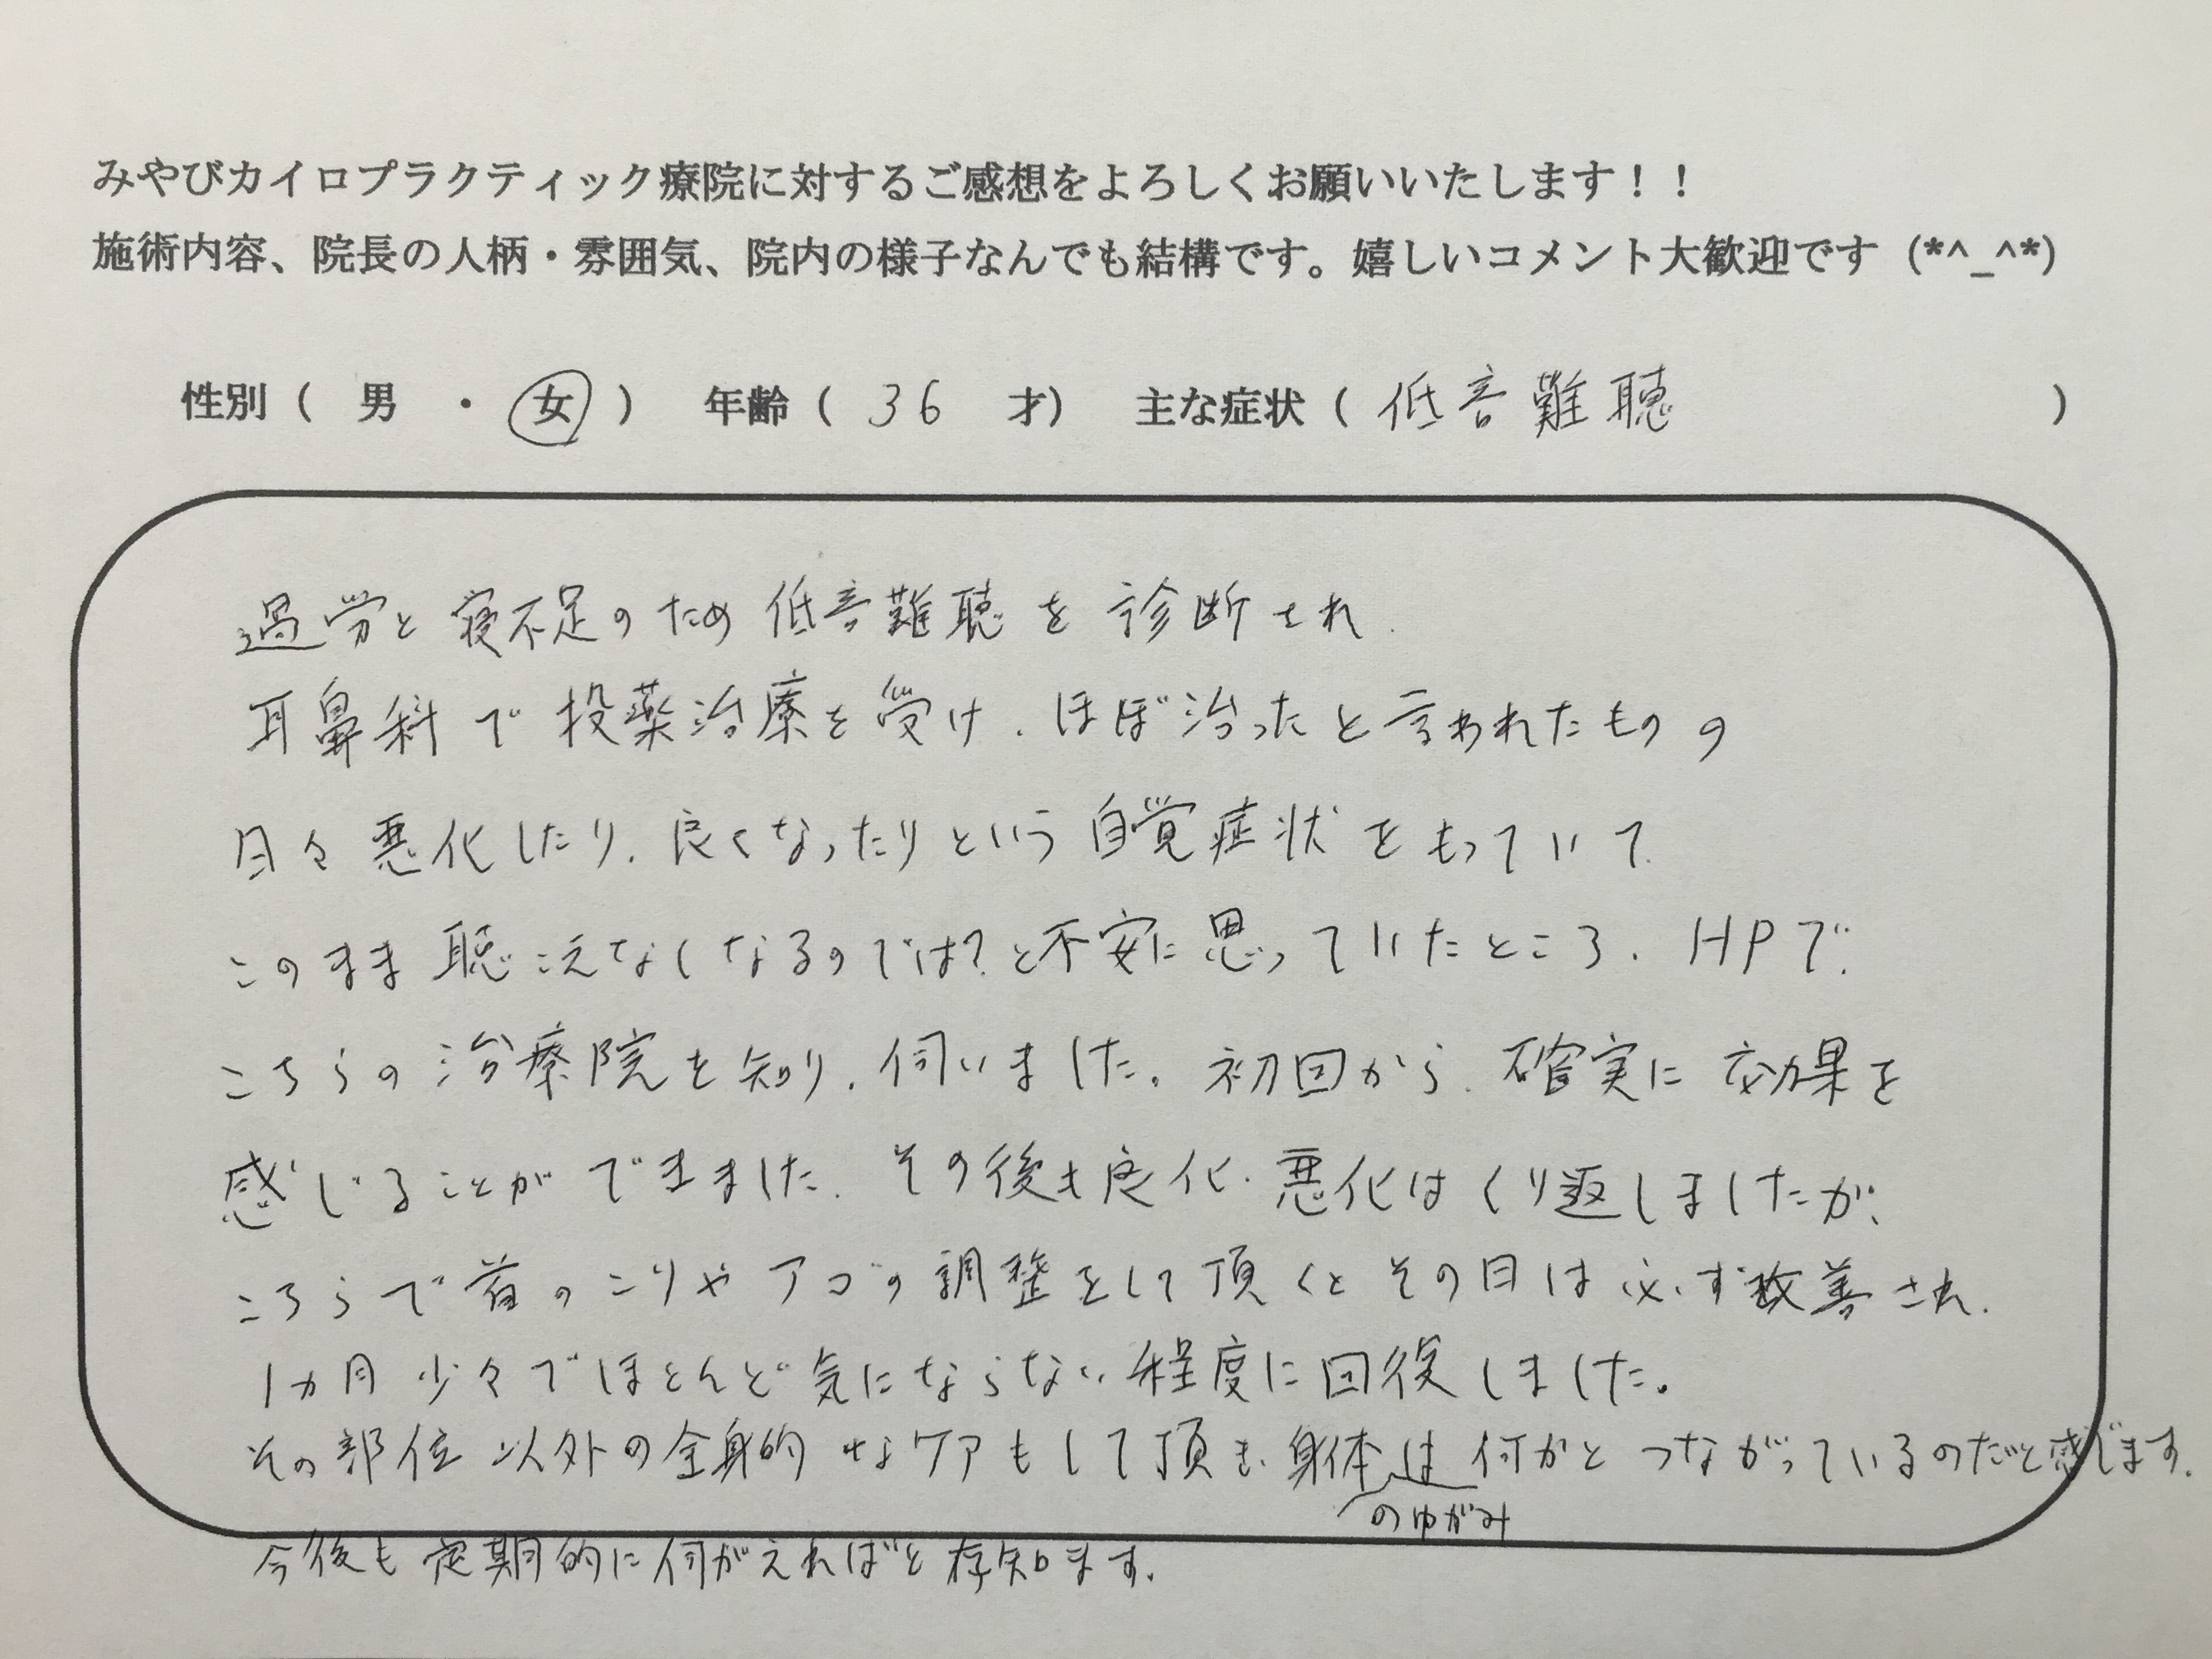 みやびカイロプラクティック療院に対するご感想をよろしくお願いいたします！！
施術内容、院長の人柄・雰囲気、院内の様子なんでも結構です。嬉しいコメント大歓迎です (*^_^*)
性別（ 男 ・ 女 ） 年齢（ 36 才） 主な症状（ 低音難聴 ）
過労と寝不足のため低音難聴を診断され、
耳鼻科で投薬治療を受け、ほぼ治ったと言われたものの
日々悪化したり、良くなったりという自覚症状をもっていて
このまま聴こえなくなるのでは？と不安に思っていたところ、HPで、
こちらの治療院を知り、伺いました。初回から、確実に効果を
感じることができました。その後も良化、悪化はくり返しましたが、
こちらで首のこりやアゴの調整をして頂くとその日は必ず改善され、
1ヵ月少々でほとんど気にならない程度に回復しました。
その部位以外の全身的なケアもして頂き、身体のゆがみは何かとつながっているのだと感じます。
今後も定期的に伺がえればと存知ます。